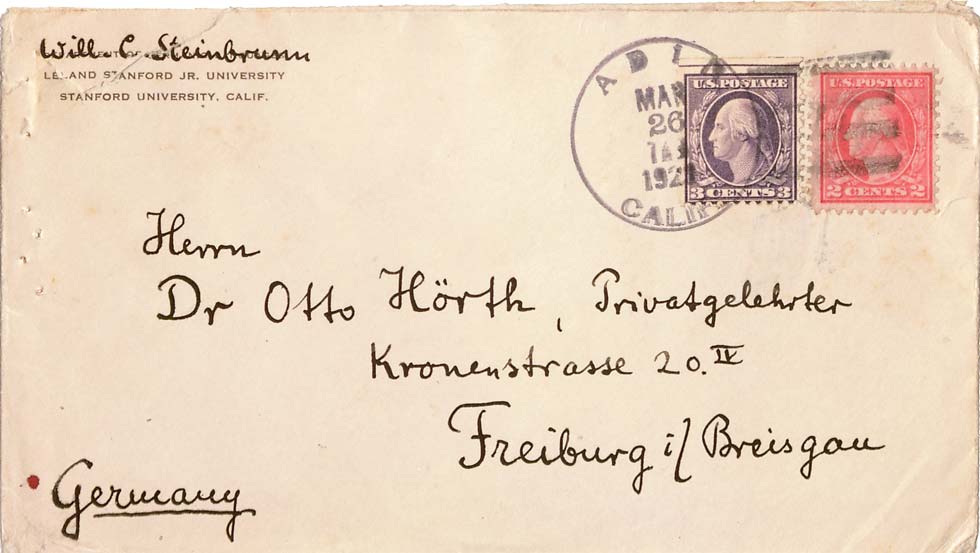 Will. C. Steinbrunn
LELAND STANFORD JR. UNIVERSITY
STANFORD UNIVERSITY, CALIF.
ADIN
MAR
26
192
CALIF.
U.S. POSTAGE
3 CENTS 3
U.S. POSTAGE
2 CENTS 2
Herrn
Dr Otto Hörth, Privatgelehrter
Kronenstrasse 20.IV
Freiburg i/Breisgau
Germany